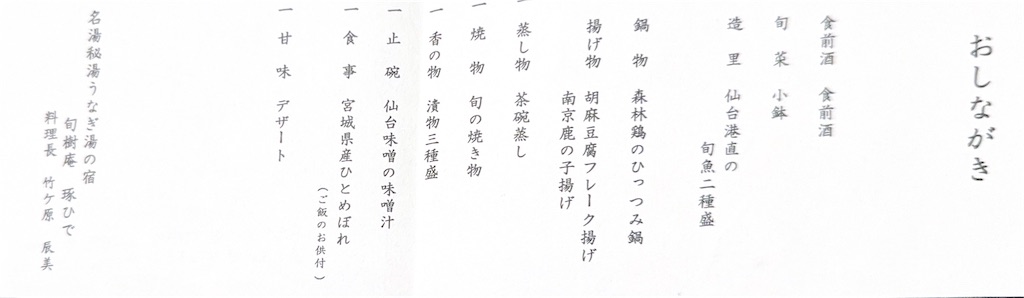 おしながき
食前酒　食前酒
旬　菜　小鉢
造　里　仙台港直の
旬魚二種盛
鍋　物　森林鶏のひっつみ鍋
揚げ物　胡麻豆腐フレーク揚げ
南京鹿の子揚げ
一　蒸し物　茶碗蒸し
一　焼　物　旬の焼き物
一　香の物　漬物三種盛
一　止　碗　仙台味噌の味噌汁
一　食　事　宮城県産ひとめぼれ
（ご飯のお供付）
一　甘　味　デザート
名湯秘湯うなぎ湯の宿
旬樹庵　琢ひで
料理長　竹ケ原　辰美